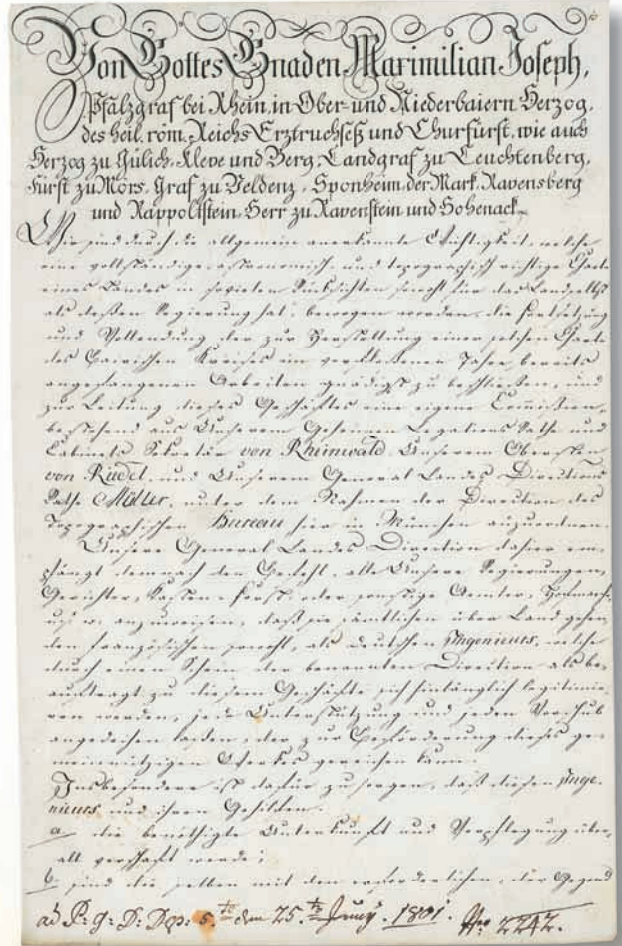 Von Gottes Gnaden Maximilian Joseph,
Pfalzgraf bei Rhein, in Ober- und Niederbaiern Herzog,
des heil. röm. Reichs Erztruchseß und Churfürst, wie auch
Herzog zu Gülich, Kleve und Berg, Landgraf zu Leuchtenberg,
Fürst zu Mörs, Graf zu Veldenz, Sponheim, der Mark, Ravensberg
und Rappoltstein, Herr zu Ravenstein und Hohenack.
Wir sind durch die allgemeine anerkannte Wichtigkeit, welche
eine vollständige, astronomisch, und topographisch richtige Charte
eines Landes in sovielen Rücksichten sowohl für das Land selbst
als deßen Regierung hat, bewogen worden, die Fortsetzung
und Vollendung der zur Herstellung einer solchen Charte
des Bairischen Kreises im verfloßenen Jahre bereits
angefangenen Arbeiten gnädigst zu beschließen, und
zur Leitung dieses Geschäftes eine eigene Commißion,
bestehend aus Unserem Geheimen Legations Rathe und
Cabinets Sekretär von Rheinwald Unserem Obersten
von Riedel, und Unserem General Landes Directions
Rathe Müller, unter dem Nahmen der Direction des
Topographischen Bureau hier in München anzuordnen.
Unsere General Landes Direction dahier em-
pfängt demnach den Befehl, alle Unsere Regierungen,
Gerichter, Kasten- Forst- oder sonstige Aemter,
anzuweisen, daß sie sämtlichen über Land gehen-
den französischen sowohl, als deutschen Ingenieurs, welche
durch einen Schein der benannten Direction als be-
auftragt zu diesem Geschäfte sich hinlänglich legitimi-
ren werden, jede Unterstützung und jeden Vorschub
angedeihen laßen, der zur Beförderung dieses ge-
meinnützigen Werkes gereichen kann.
Insbesondere ist dafür zu sorgen, daß diesen Inge-
nieurs und ihren Gehilfen.
a die benöthigte Unterkunft und Verpflegung über-
all verschafft werde;
b. sind dieselben mit den erforderlichen, der Gegend
ad P: g: D: Dep: 5. den 25. Juny. 1801. No: 2242.